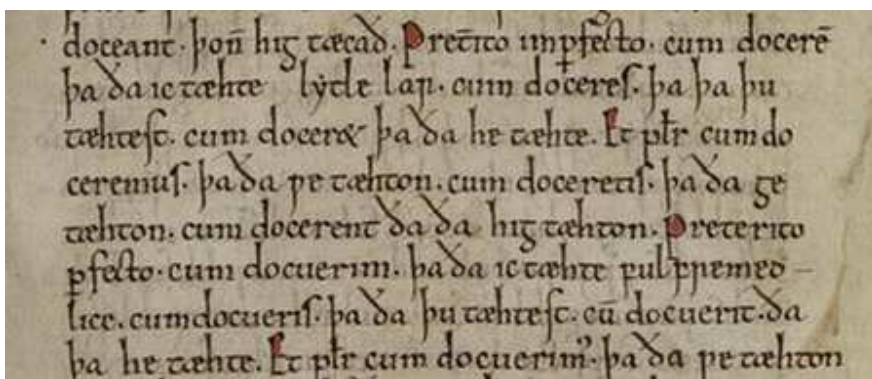 doceant· þoñ hig tæcað. Pret̄ito inp̱fec̄to· cum docerē
þa ða ic tæhte lẏtle læſſ· cum doceres. þa þa þu
tæhtest. cum docer& þa ða he tæhte. Et plr̄ cum do
ceremus. þa ða ƿe tæhton. cum doceretis. þa ða ge
tæhton. cum docerent ða ða hig tæhton. Preterito
p̱fecto· cum docuerim. þa ða ic tæhte fulfremed
lice. cum docueris. þa ða þu tæhtest. cū docuerit. ða
þa he tæhte. Et plr̄ cum docuerim᷒. þa ða ƿe tæhton